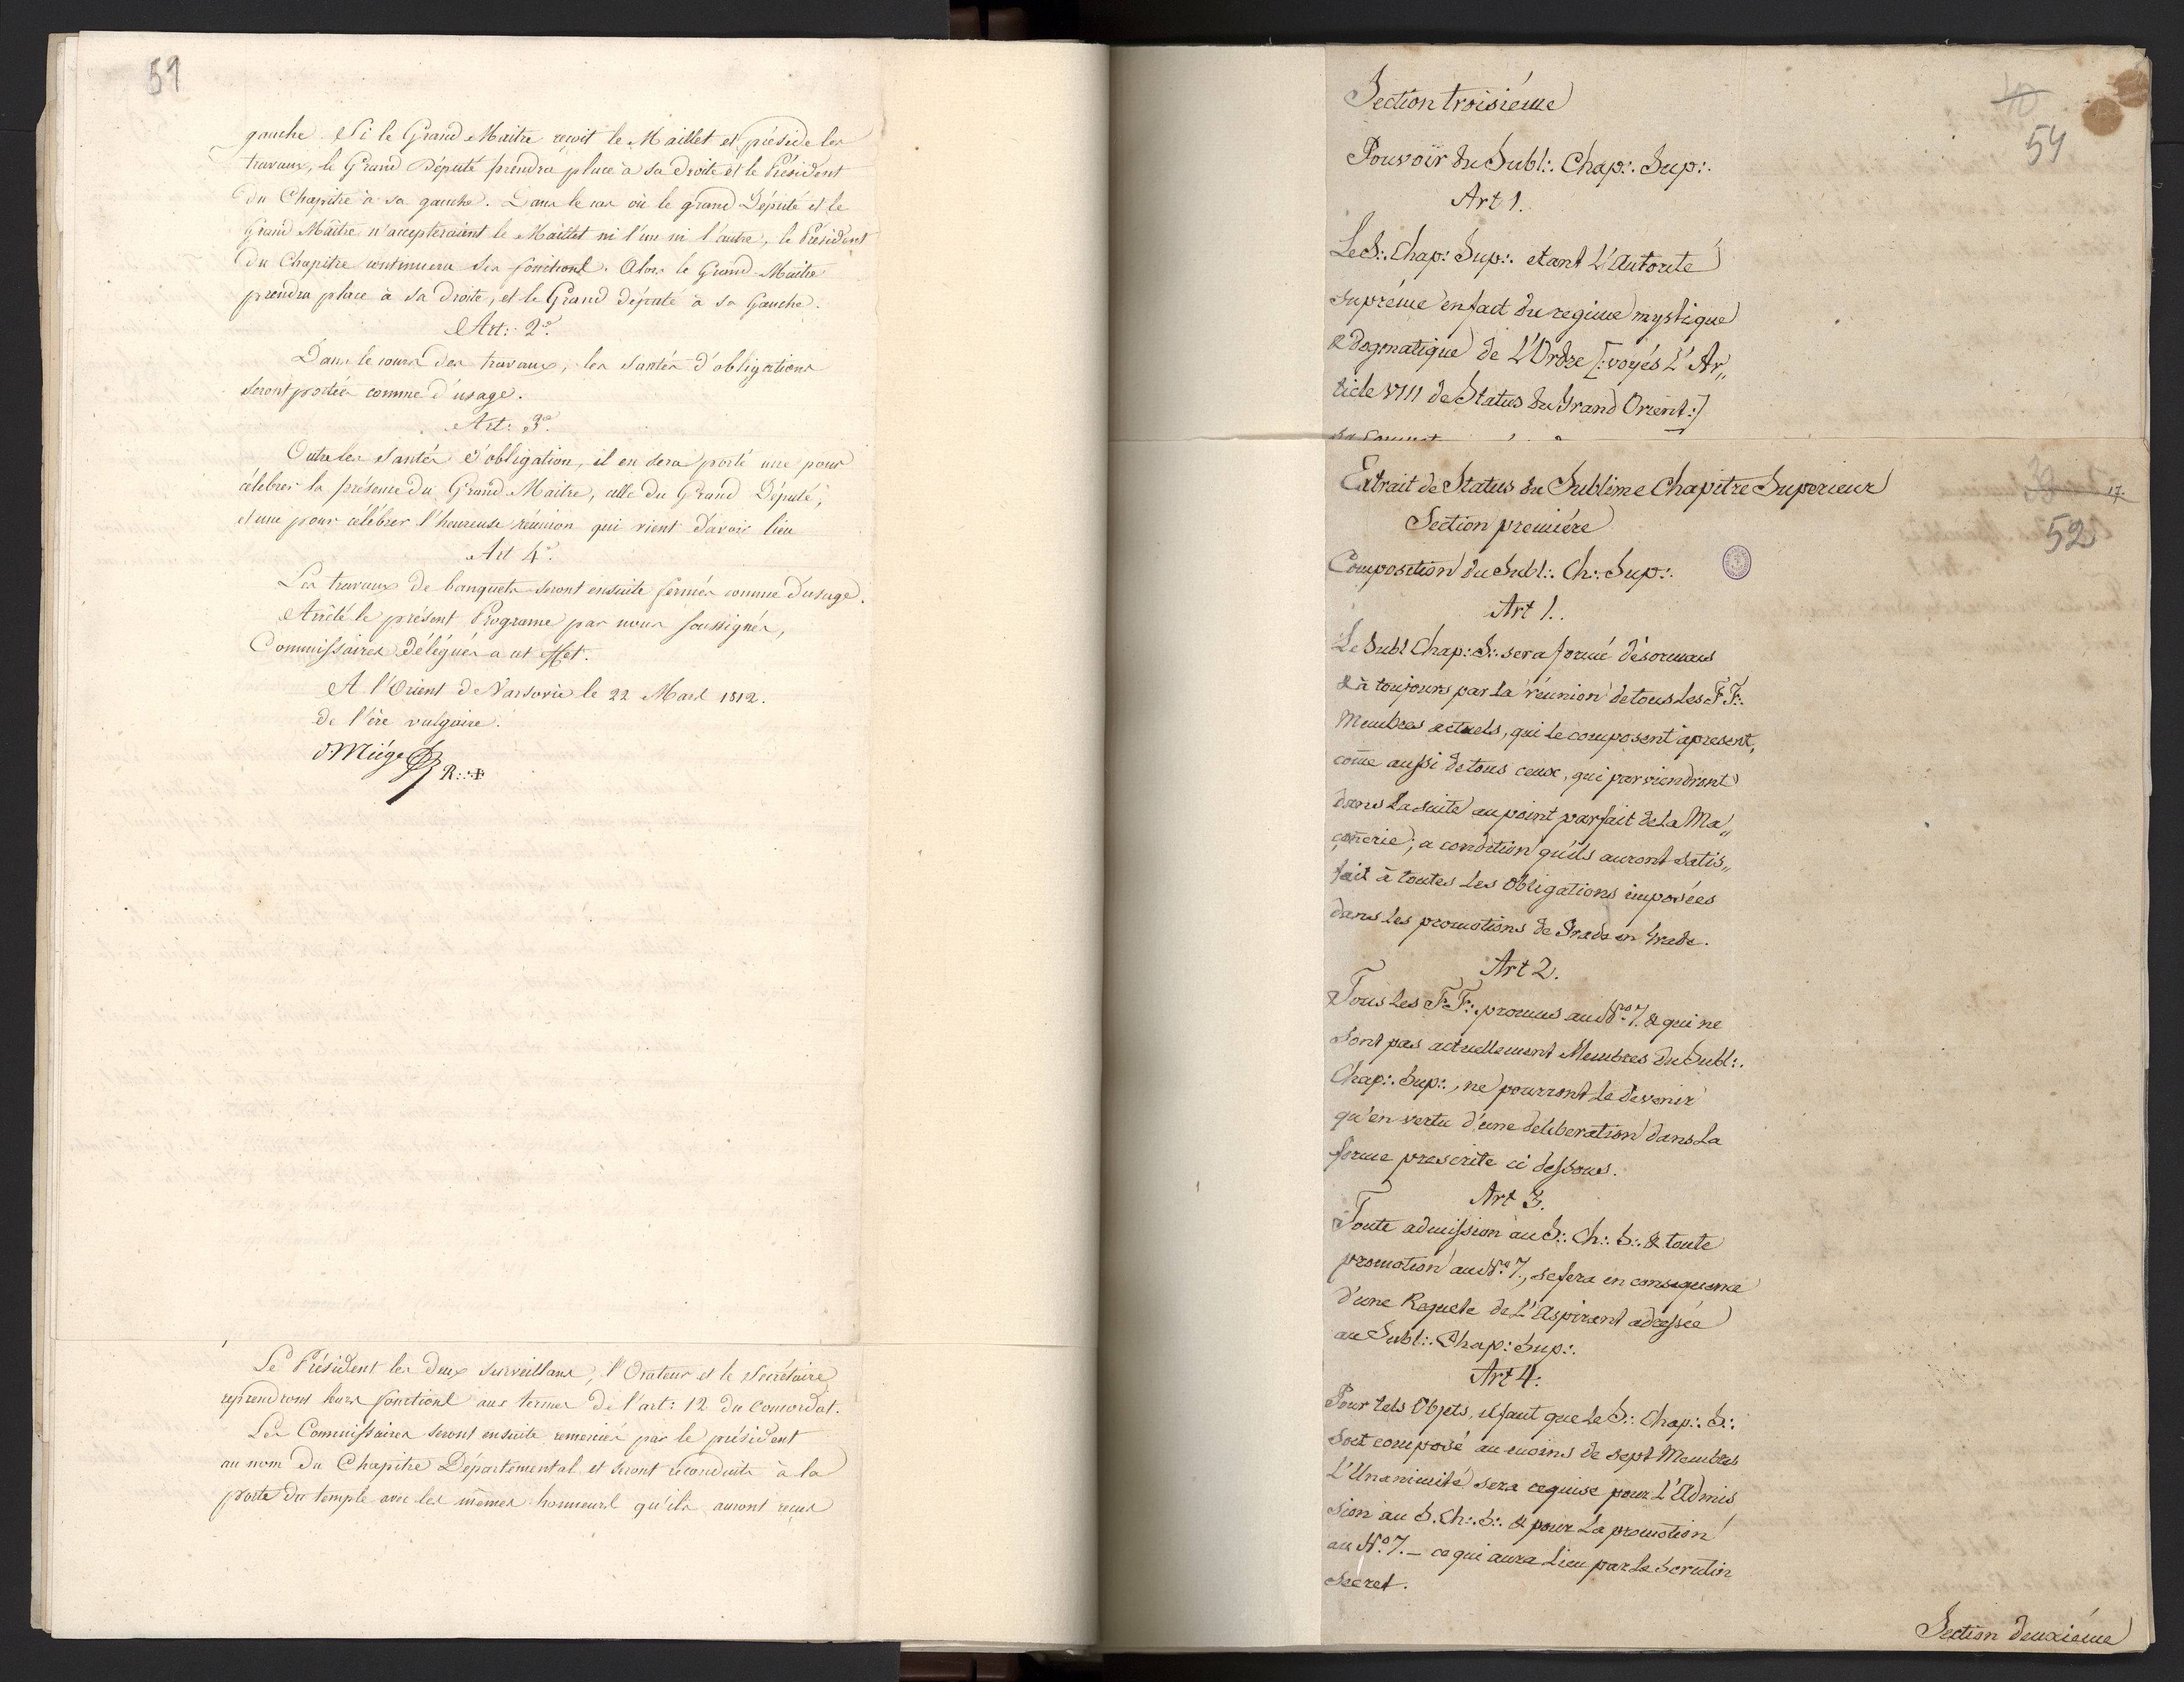 51
gauche. Si le Grand Maitre reçoit le Maillet et préside les
travaux, le Grand Député prendra place à sa droite et le Président
du Chapitre à sa gauche. Dans le cas où le grand Député et le
Grand Maître n'accepteraient le Maillet ni l'un ni l'autre, le Président
du Chapitre continuera ses fonctions. Alors le Grand-Maître
prendra place à sa droite, et le Grand député à sa Gauche.
Art: 2º.
Dans le cours des travaux, les santés d'obligations
seront portées comme d'usage.
Art: 3º.
Outre les santés d'obligation, il en sera porté une pour
célebrer la présence du Grand-Maitre, celle du Grand Député,
et une pour célébrer l'heureuse réunion qui vient d'avoir lieu
Art 4º.
Les travaux de banquets seront ensuite fermés comme d'usage.
Arrêté le présent Programe par nous soussignés,
Commissaires délégués a cet effet.
A l'Orient de Varsovie le 22 Mars 1812.
de l'ère vulgaire.
Miége R.:
Le Président les deux surveillans, l'Orateur et le Secrétaire
reprendront leurs fonctions aux termes de l'art: 12 du Concordat.
Les Commissaires seront ensuite remerciés par le président
au nom du Chapitre Départemental et seront reconduits à la
porte du temple avec les mêmes honneurs qu'ils auront reçus
Section troisiéme
40
54
Pouvoir du Subl:. Chap:. Sup:.
Art 1.
Le S:. Chap: Sup:. etant L'Autorité
supréme en fait du regime mystique
& dogmatique de L'Ordre [:voyés L'Ar,,
ticle VIII de Status du Grand Orient:]
Extrait de Status du Sublime Chapitre Superieur
17.
52
Section premiére
Composition du Subl:. Ch:. Sup:.
Art 1.
Le Subl Chap: S:. sera formé désormais
& à toujours par la réunion de tous Les F.F:.
Membres actuels, qui le composent apresent,
come aussi de tous ceux, qui parviendront
dans La suite au point parfait de La Ma,,
çonerie; a condition qu'ils auront satis,,
fait à toutes Les Obligations imposées
dans Les promotions de Grade en Grade.
Art 2.
Tous Les F.F:. promus au Nº 7. & qui ne
sont pas actuellement Membres du Subl:.
Chap:. Sup:., ne pourront Le devenir
qu'en vertu d'une deliberation dans La
forme prescrite ci dessous.
Art 3.
Toute admission au S:. Ch:. S:. & toute
promotion au Nº 7., se fera en consequence
d'une Requete de L'Aspirant adressée
au Subl:. Chap: Sup:.
Art 4:
Pour tels Objets, il faut que Le S:. Chap:. S:.
soit composé au moins de sept Membres
L'Unanimité sera requise pour L'Admis
sion au S. Ch:. S:. & pour La promotion
au Nº 7. – ce qui aura Lieu par Le Scrutin
Secret.
Section deuxiéme